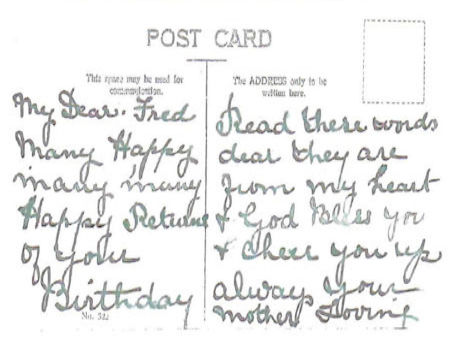 POST CARD
This space may be used for
communication.
The ADDRESS only to be
written here.
My Dear. Fred
Many Happy
many many
Happy Returns
of your
Birthday
No. 522
Read these words
dear they are
from my heart
& God Bless you
& cheer you up
always your
mother Loving